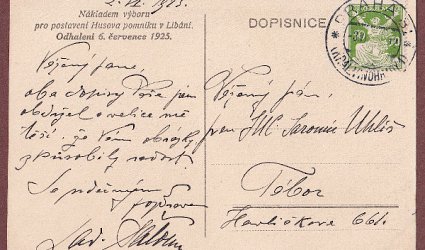 2. VII. 1925.
Nákladem výboru
pro postavení Husova pomníku v Libáni.
Odhalení 6. července 1925.
DOPISNICE
Vážený pane,
oba dopisy Vaše jsem
obdržel a velice mě
těší, že Vám obrázky
způsobily radost.
Se srdečným
pozdravem
Lad. Šaloun
Vážený pán,
pan JUC Jaromír Uhlíř
Tábor
Havlíčkova 661.